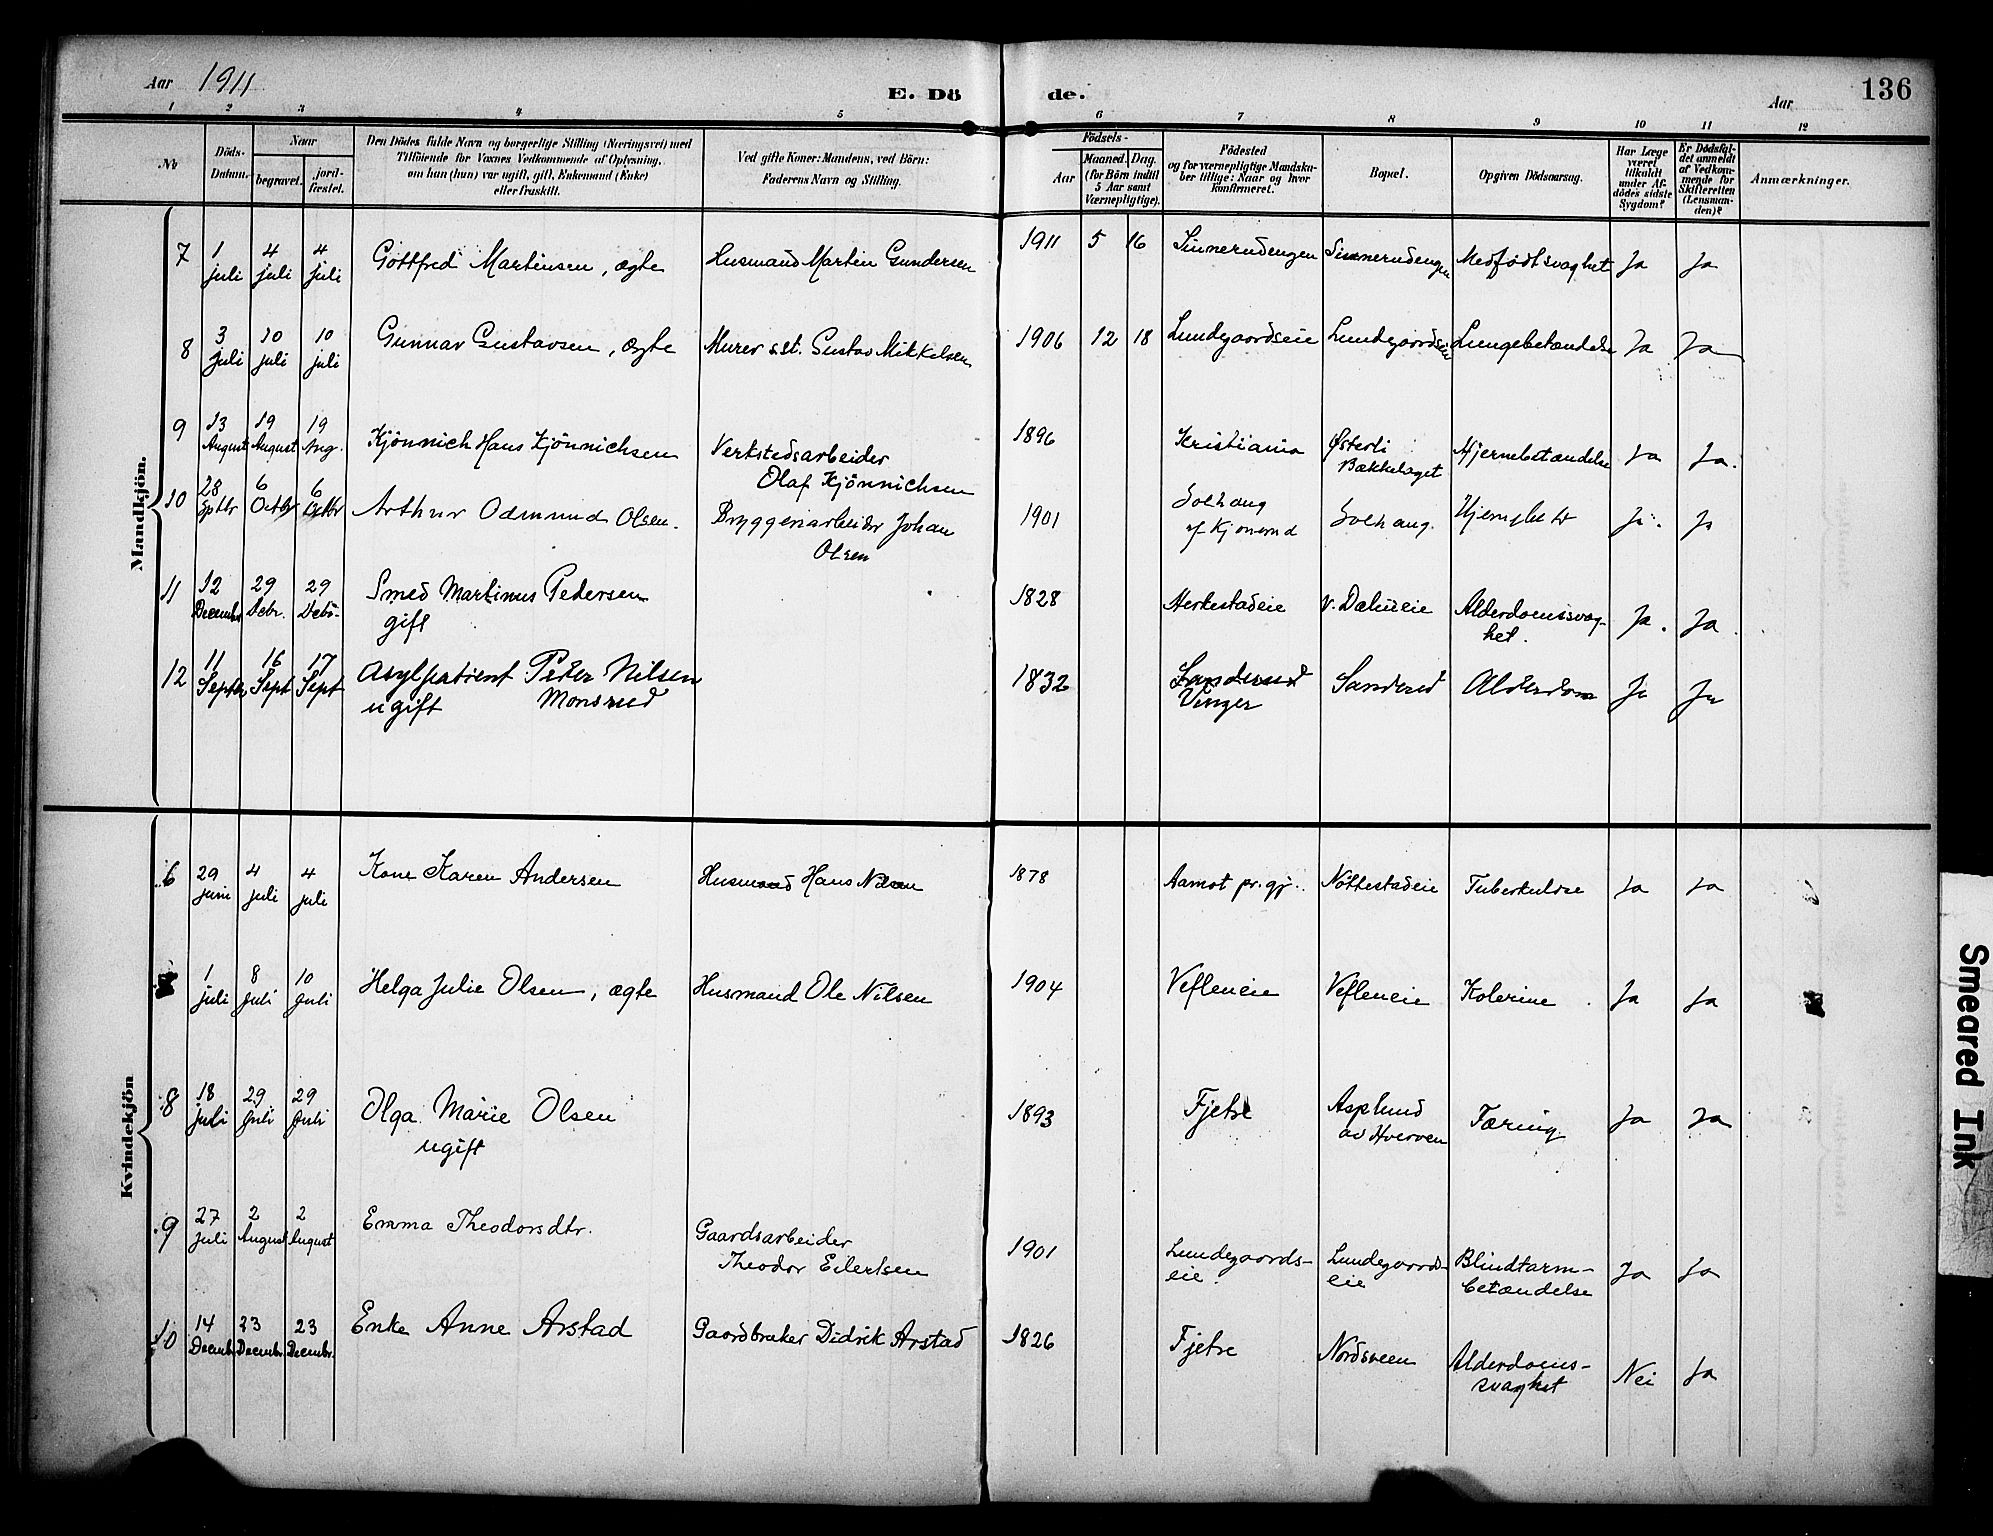 Aar 1911
E. Döde.
Aar
136
1 2 3 4 5 6 7 8 9 10 11 12
No
Döds-
Datum.
Naar
begravet.
jord-
fæstet.
Den Dödes fulde Navn og borgerlige Stilling (Næringsvei) med
Tilföiende for Voxnes Vedkommende af Oplysning,
om han (hun) var ugift, gift, Enkemand (Enke)
eller fraskilt.
Ved gifte Koner: Mandens, ved Börn:
Faderens Navn og Stilling.
Födsels-
Aar
Maaned. Dag.
(for Börn indtil
5 Aar samt
Værnepligtige).
Födested
og for værnepligtige Mandska-
ber tillige: Naar og hvor
konfirmeret.
Bopæl.
Opgiven Dödsaarsag.
Har Læge
været
tilkaldt
under Af-
dödes sidste
Sygdom?
Er Dödsfal-
det anmeldt
af Vedkom-
mende for
Skifteretten
(Lensman-
den)?
Anmærkninger.
Mandkjön.
7 1 juli 4 juli 4 juli Gottfred Martinsen, ægte Husmand Martin Gundersen 1911 5 16 Sinnerudengen Sinnerudengen Medfødt svaghet Ja Ja
8 3 juli 10 juli 10 juli Gunnar Gustavsen, ægte Murer sst. Gustav Mikkelsen 1906 12 18 Lundegaardseie Lundegaardseie Lungebetændelse Ja Ja
9 13 August 19 August 19 Aug. Kjönnich Hans Kjönnichsen Verkstedsarbeider
Olaf Kjönnichsen 1896 Kristiania Østerli
Bækkelaget Hjernebetændelse Ja Ja.
10 28 Sptbr 6 Octbr 6 Octbr Arthur Odmund Olsen. Bryggeriarbeider Johan
Olsen 1901 Solhaug
af Solhaug. Ja. Ja
11 12 Decembr 29 Debr. 29 Debr. Smed Martinus Pedersen
gift 1828 Herkestadeie v. Dæhlieie Alderdomssvag-
het. Ja. Ja.
12 11 Septbr 16 Sept 17 Sept Asylpatient Peder Nilsen
ugift Monsrud 1832 Sanderud
Vinger Sanderud Alderdom Ja Ja
Kvindekjön
6 29 juni 4 juli 4 juli Kone Karen Andersen Husmand Hans Nilsen 1878 Aamot pr.gj. Nöttestadeie Tuberkulose Ja Ja
1 juli 8 juli 10 juli Helga Julie Olsen, ægte Husmand Ole Nilsen 1904 Vefleneie Vefleneie Kolerine. Ja Ja
8 18 juli 29 juli 29 juli Olga Marie Olsen
ugift 1893 Fjetre Asplund
av Hverven Tæring Ja Ja
9 27 juli 2 August 2 August Emma Theodorsdtr. Gaardsarbeider
Theodor Eilertsen 1901 Lundegaards-
eie. Lundegaards-
eie Blindtarm-
betændelse Ja Ja
10 14 Decembr 23 Decembr 23 Decembr. Enke Anne Arstad Gaardbruker Didrik Arstad 1826 Fjetre Nordsveen Alderdoms-
svaghet Nei Ja
Smeared Ink